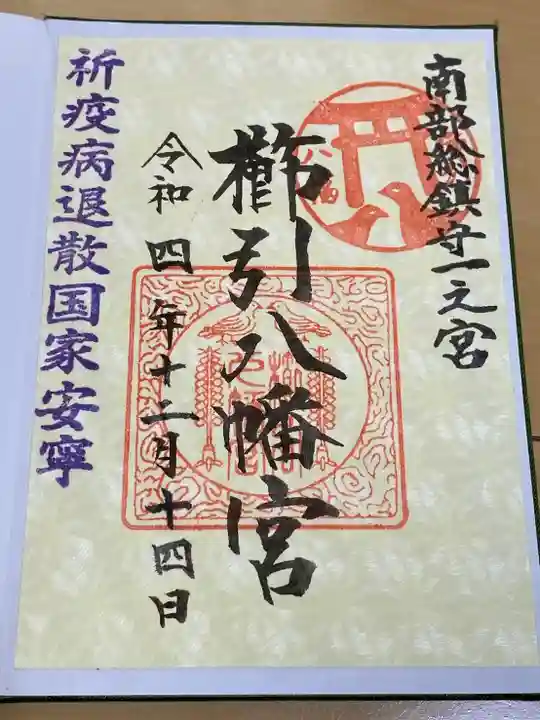 南部総鎮守一之宮
八幡
櫛引八幡宮
令和四年十二月十四日
祈疫病退散国家安寧